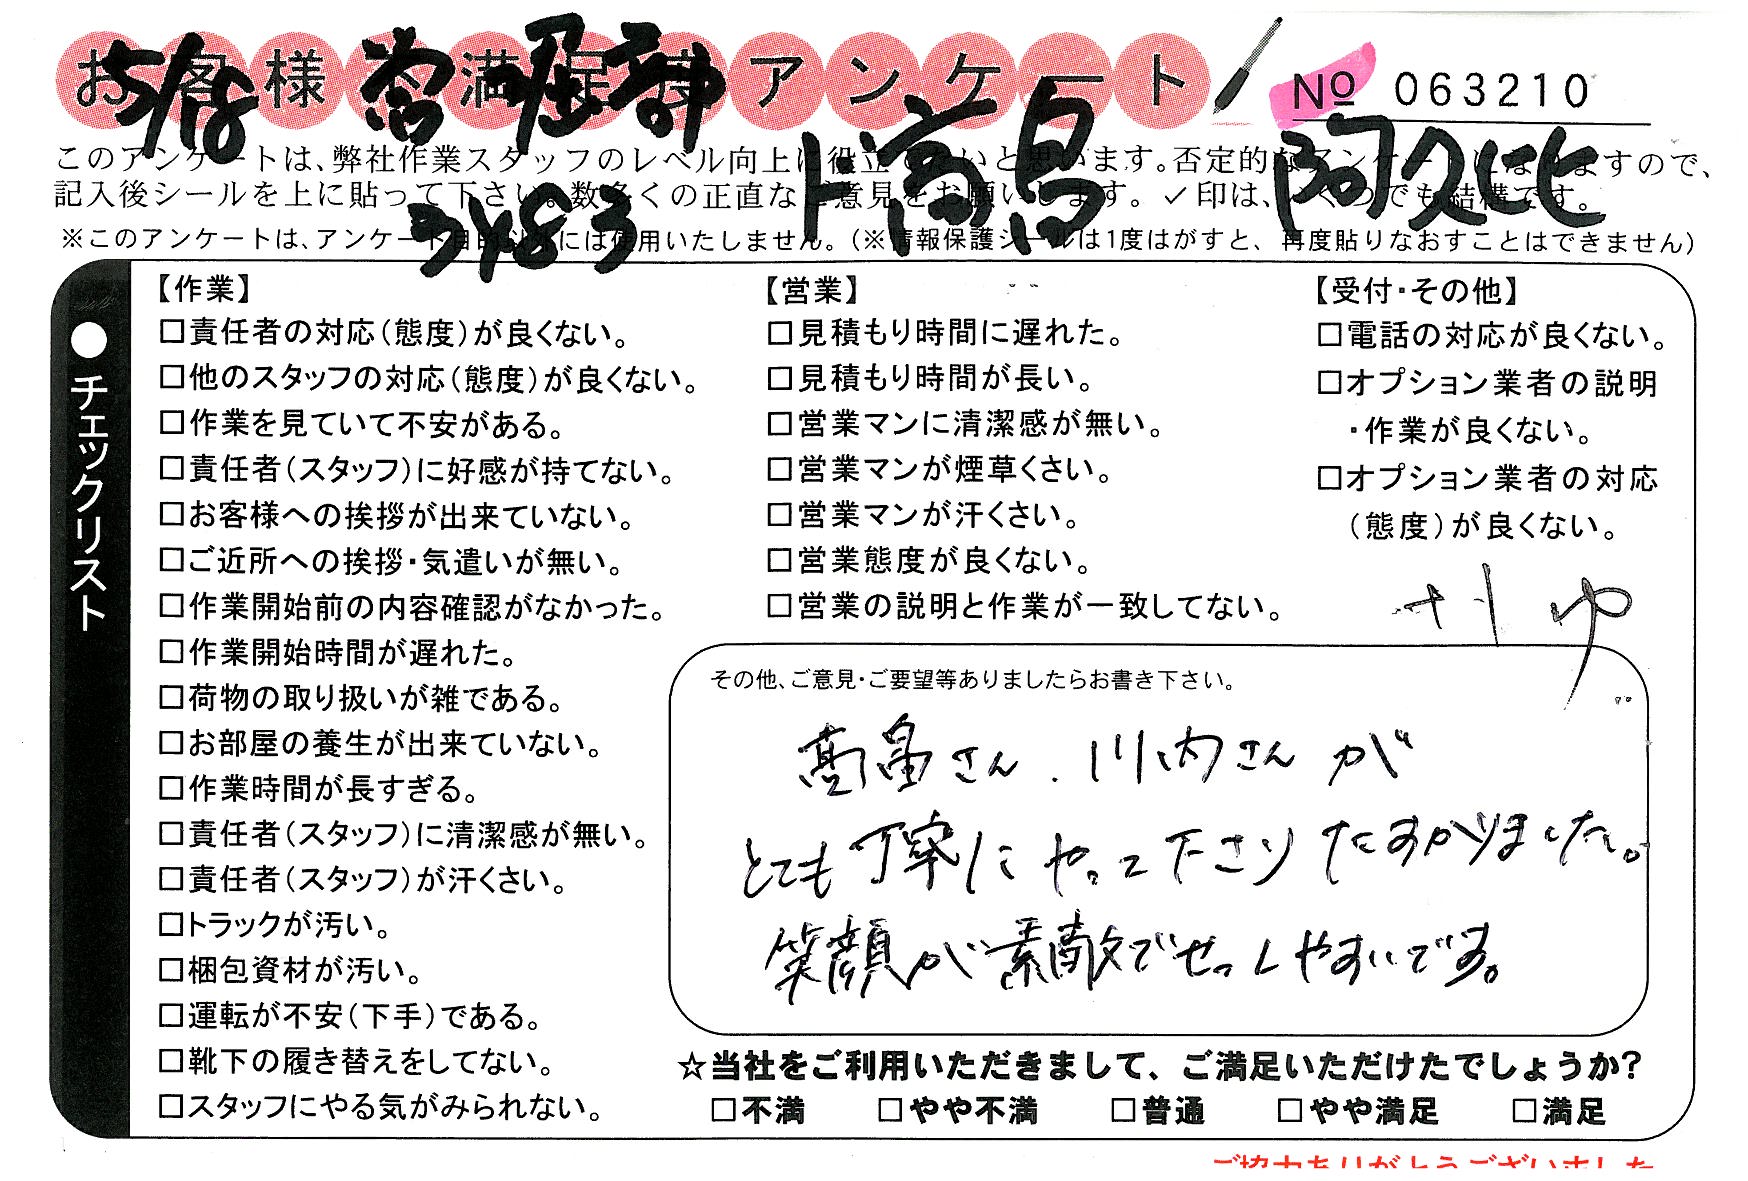 お客様の満足度アンケート
No 063210
5/18
3483
ド高畠
阿久比
このアンケートは、弊社作業スタッフのレベル向上に役立てたいと思います。否定的なアンケートになりますので、
記入後シールを上に貼って下さい。数多くの正直なご意見をお願いします。✓印は、いくつでも結構です。
※このアンケートは、アンケート目的以外には使用いたしません。(※情報保護シールは1度はがすと、再度貼りなおすことはできません)
●チェックリスト
【作業】
□責任者の対応(態度)が良くない。
□他のスタッフの対応(態度)が良くない。
□作業を見ていて不安がある。
□責任者(スタッフ)に好感が持てない。
□お客様への挨拶が出来ていない。
□ご近所への挨拶・気遣いが無い。
□作業開始前の内容確認がなかった。
□作業開始時間が遅れた。
□荷物の取り扱いが雑である。
□お部屋の養生が出来ていない。
□作業時間が長すぎる。
□責任者(スタッフ)に清潔感が無い。
□責任者(スタッフ)が汗くさい。
□トラックが汚い。
□梱包資材が汚い。
□運転が不安(下手)である。
□靴下の履き替えをしてない。
□スタッフにやる気がみられない。
【営業】
□見積もり時間に遅れた。
□見積もり時間が長い。
□営業マンに清潔感が無い。
□営業マンが煙草くさい。
□営業マンが汗くさい。
□営業態度が良くない。
□営業の説明と作業が一致してない。
【受付・その他】
□電話の対応が良くない。
□オプション業者の説明
・作業が良くない。
□オプション業者の対応
(態度)が良くない。
その他、ご意見・ご要望等ありましたらお書き下さい。
高畠さん、川内さんが
とても丁寧にやって下さりたすかりました。
笑顔が素敵でせっしやすいです。
☆当社をご利用いただきまして、ご満足いただけたでしょうか?
□不満 □やや不満 □普通 □やや満足 □満足
ご協力ありがとうございました